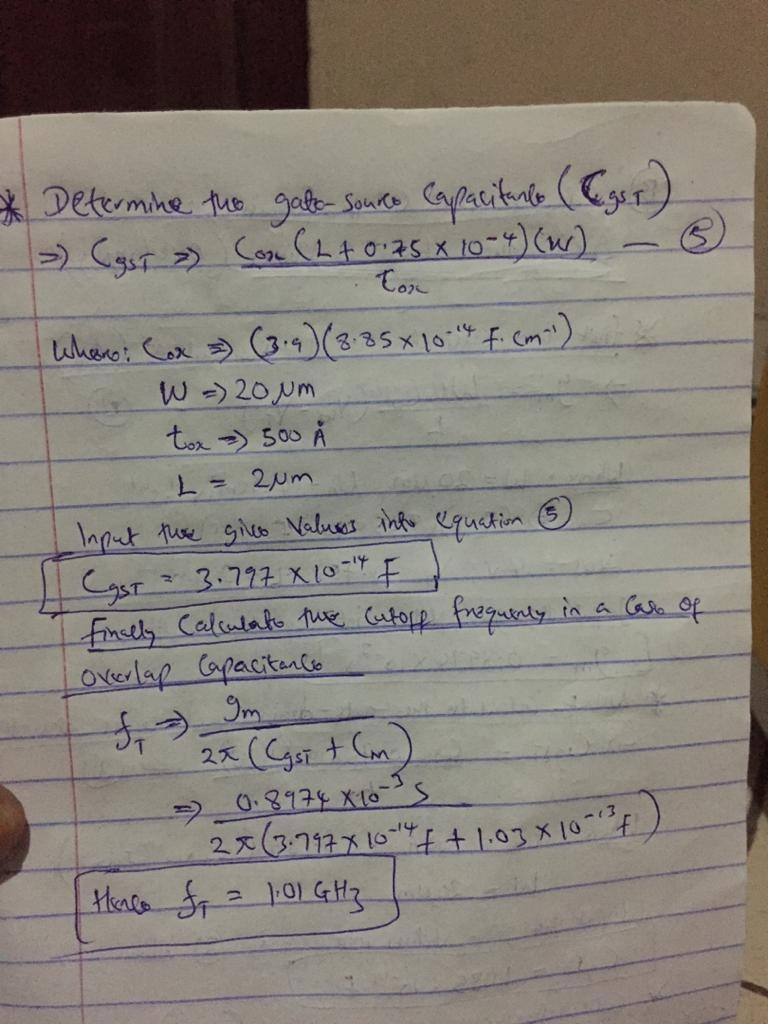 * Determine the gate-source Capacitance (CgsT)
=> CgsT => Cox (L + 0.75 x 10^-4)(W) / tox — (5)
Where: Cox => (3.9)(8.85 x 10^-14 F. cm^-1)
W => 20 μm
tox => 500 Å
L = 2μm
Input the given Values into equation (5)
CgsT = 3.797 x 10^-14 F
Finally Calculate the Cutoff frequency in a Case of
overlap Capacitance
fT => gm / 2π (CgsT + Cm)
=> 0.8974 x 10^-3 S / 2π (3.797 x 10^-14 f + 1.03 x 10^-13 f)
Hence fT = 1.01 GHz